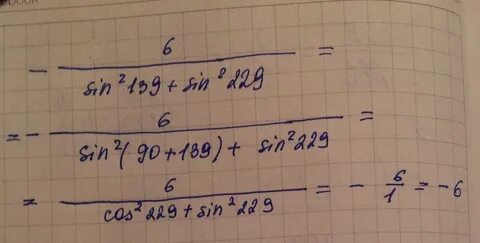 - 6/(sin²139 + sin²229) =
= - 6/(sin²(90+139) + sin²229) =
= 6/(cos²229 + sin²229) = - 6/1 = -6